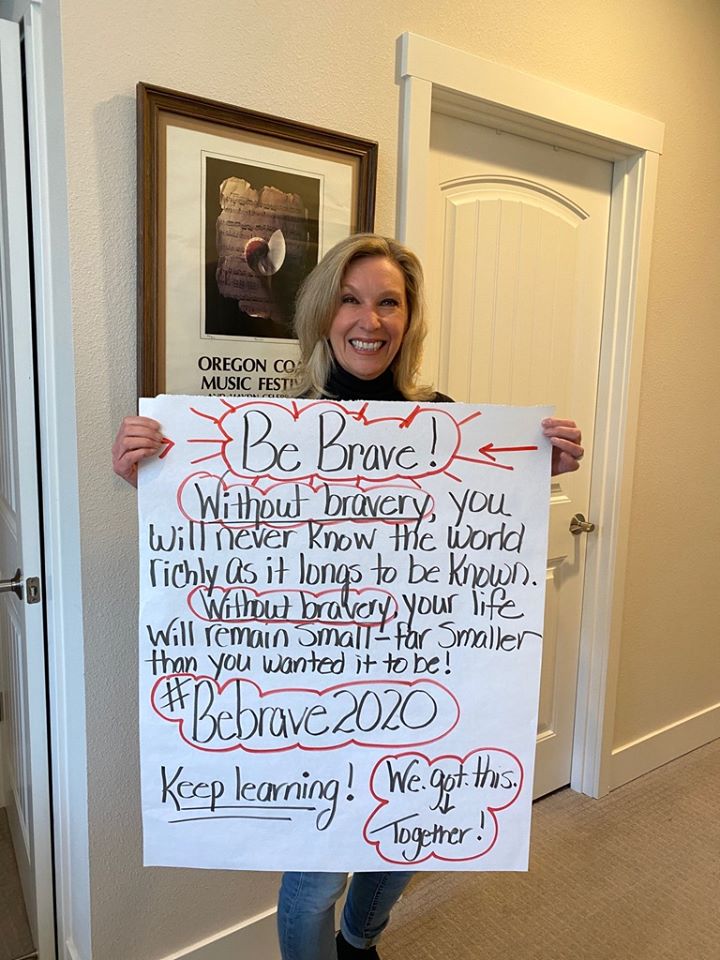 OREGON CO
MUSIC FESTI
Be Brave!
Without bravery, you
will never know the world
richly as it longs to be known.
Without bravery, your life
will remain small - far smaller
than you wanted it to be!
#Bebrave2020
Keep learning!
We. got. this.
Together!